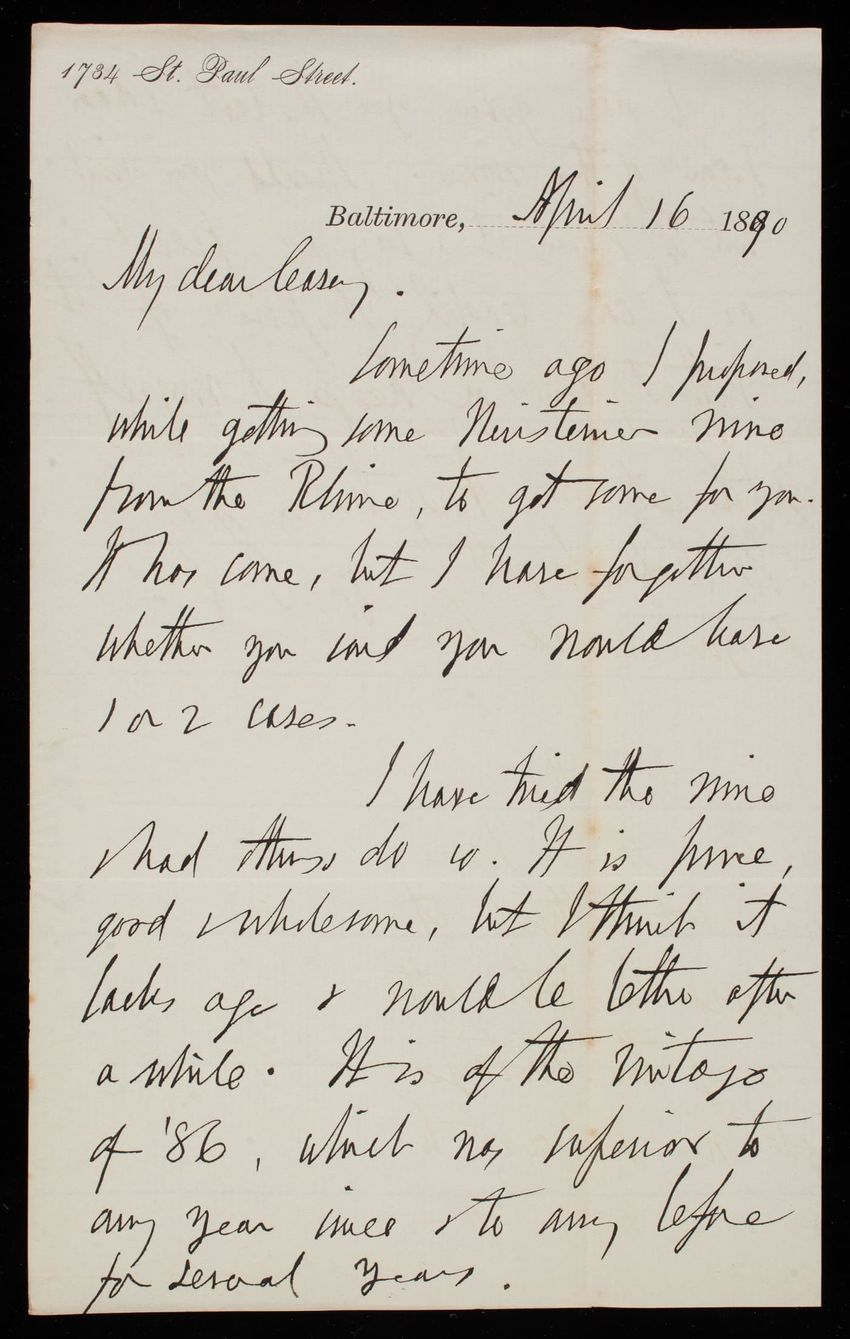 1734 St. Paul Street.
Baltimore, April 16 1890
My dear Casey.
Sometime ago I proposed,
while getting some Niersteiner wine
from the Rhine, to get some for you.
It has come, but I have forgotten
whether you said you would have
1 or 2 cases.
I have tried the wine
& had others do so. It is pure,
good & wholesome, but I think it
lacks age & would be better after
a while. It is of the vintage
of '86, which was superior to
any year since & to any before
for several years.